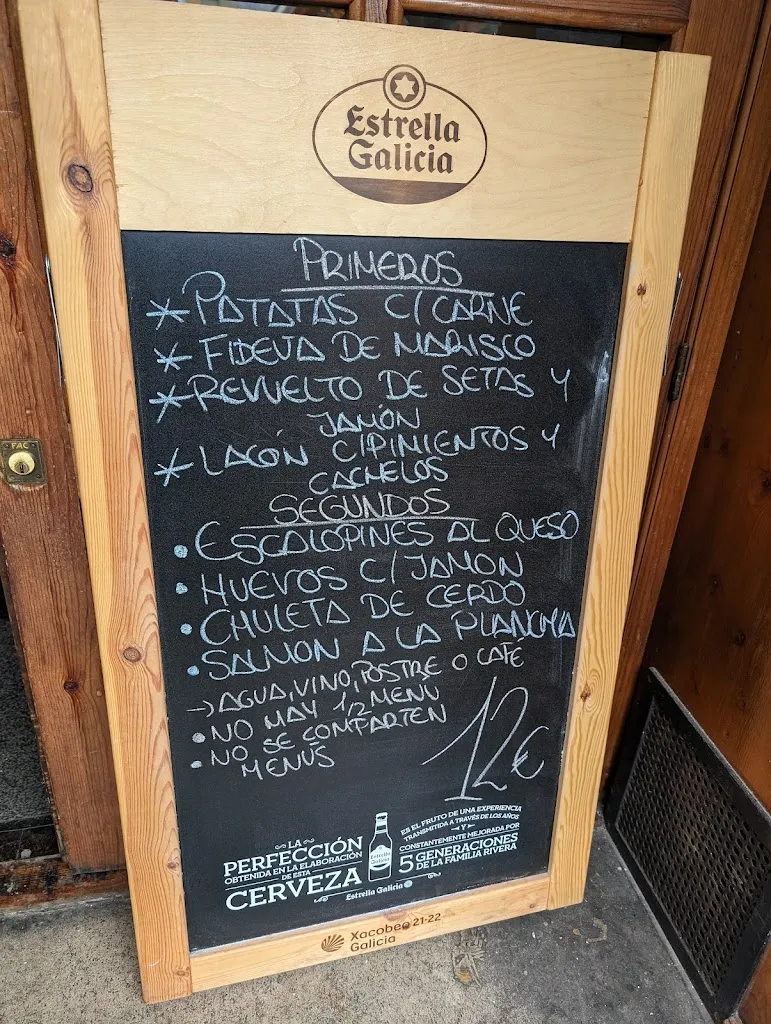 Estrella
Galicia
PRIMEROS
* PATATAS C/CARNE
* FIDEUA DE MARISCO
* REVUELTO DE SETAS Y
JAMÓN
* LACÓN C/PIMIENTOS Y
CACHELOS
SEGUNDOS
• ESCALOPINES AL QUESO
• HUEVOS C/JAMON
• CHULETA DE CERDO
• SALMON A LA PLANCHA
→ AGUA, VINO, POSTRE O CAFE
• NO HAY 1/2 MENÚ
• NO SE COMPARTEN
MENÚS
12€
FAC
LA
PERFECCIÓN
OBTENIDA EN LA ELABORACIÓN
DE ESTA
CERVEZA
ES EL FRUTO DE UNA EXPERIENCIA
TRANSMITIDA A TRAVÉS DE LOS AÑOS
Y
CONSTANTEMENTE MEJORADA POR
5 GENERACIONES
DE LA FAMILIA RIVERA
Estrella Galicia
Xacobeo 21·22
Galicia